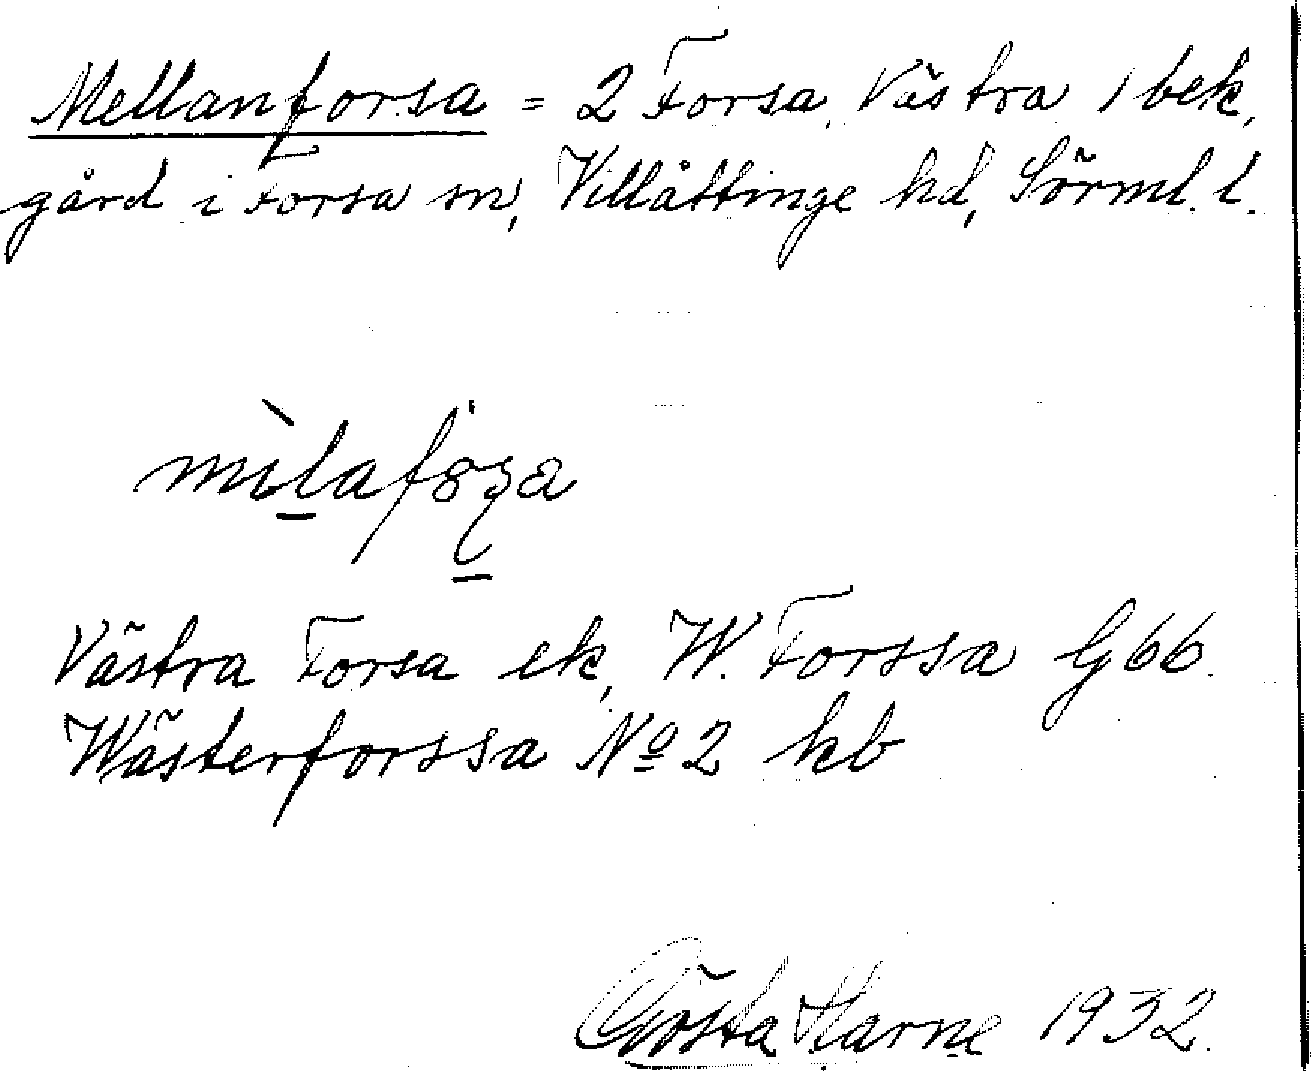 Mellanforsa = 2 Forsa, Västra 1 bek,
gård i Forsa sn, Villåttinge hd, Sörml. l.
Västra Forsa ek, W. Forssa G66.
Wästerforssa No 2 kb
Gösta Harne 1932.